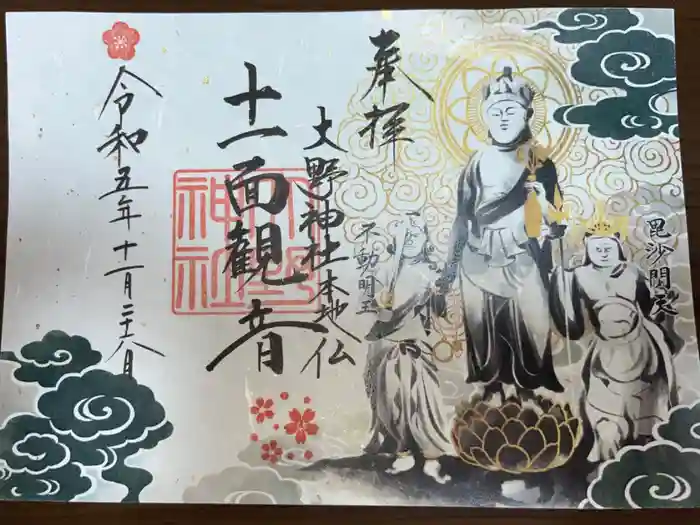 奉拝
毘沙門天
不動明王
大野神社本地仏
十一面観音
大野神社
令和五年十一月二十八日